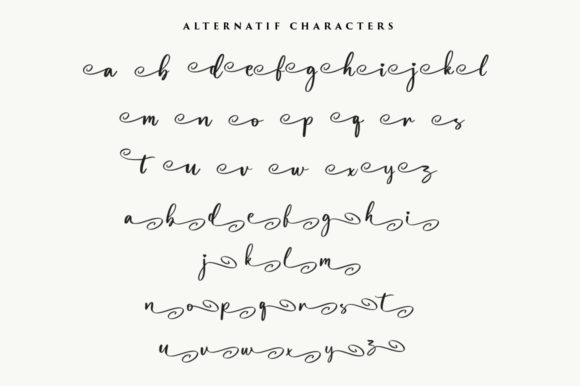 ALTERNATIF CHARACTERS
a b d e f g h i j k l
m n o p q r s
t u v w x y z
a b d e f g h i
j k l m
n o p q r s t
u v w x y z